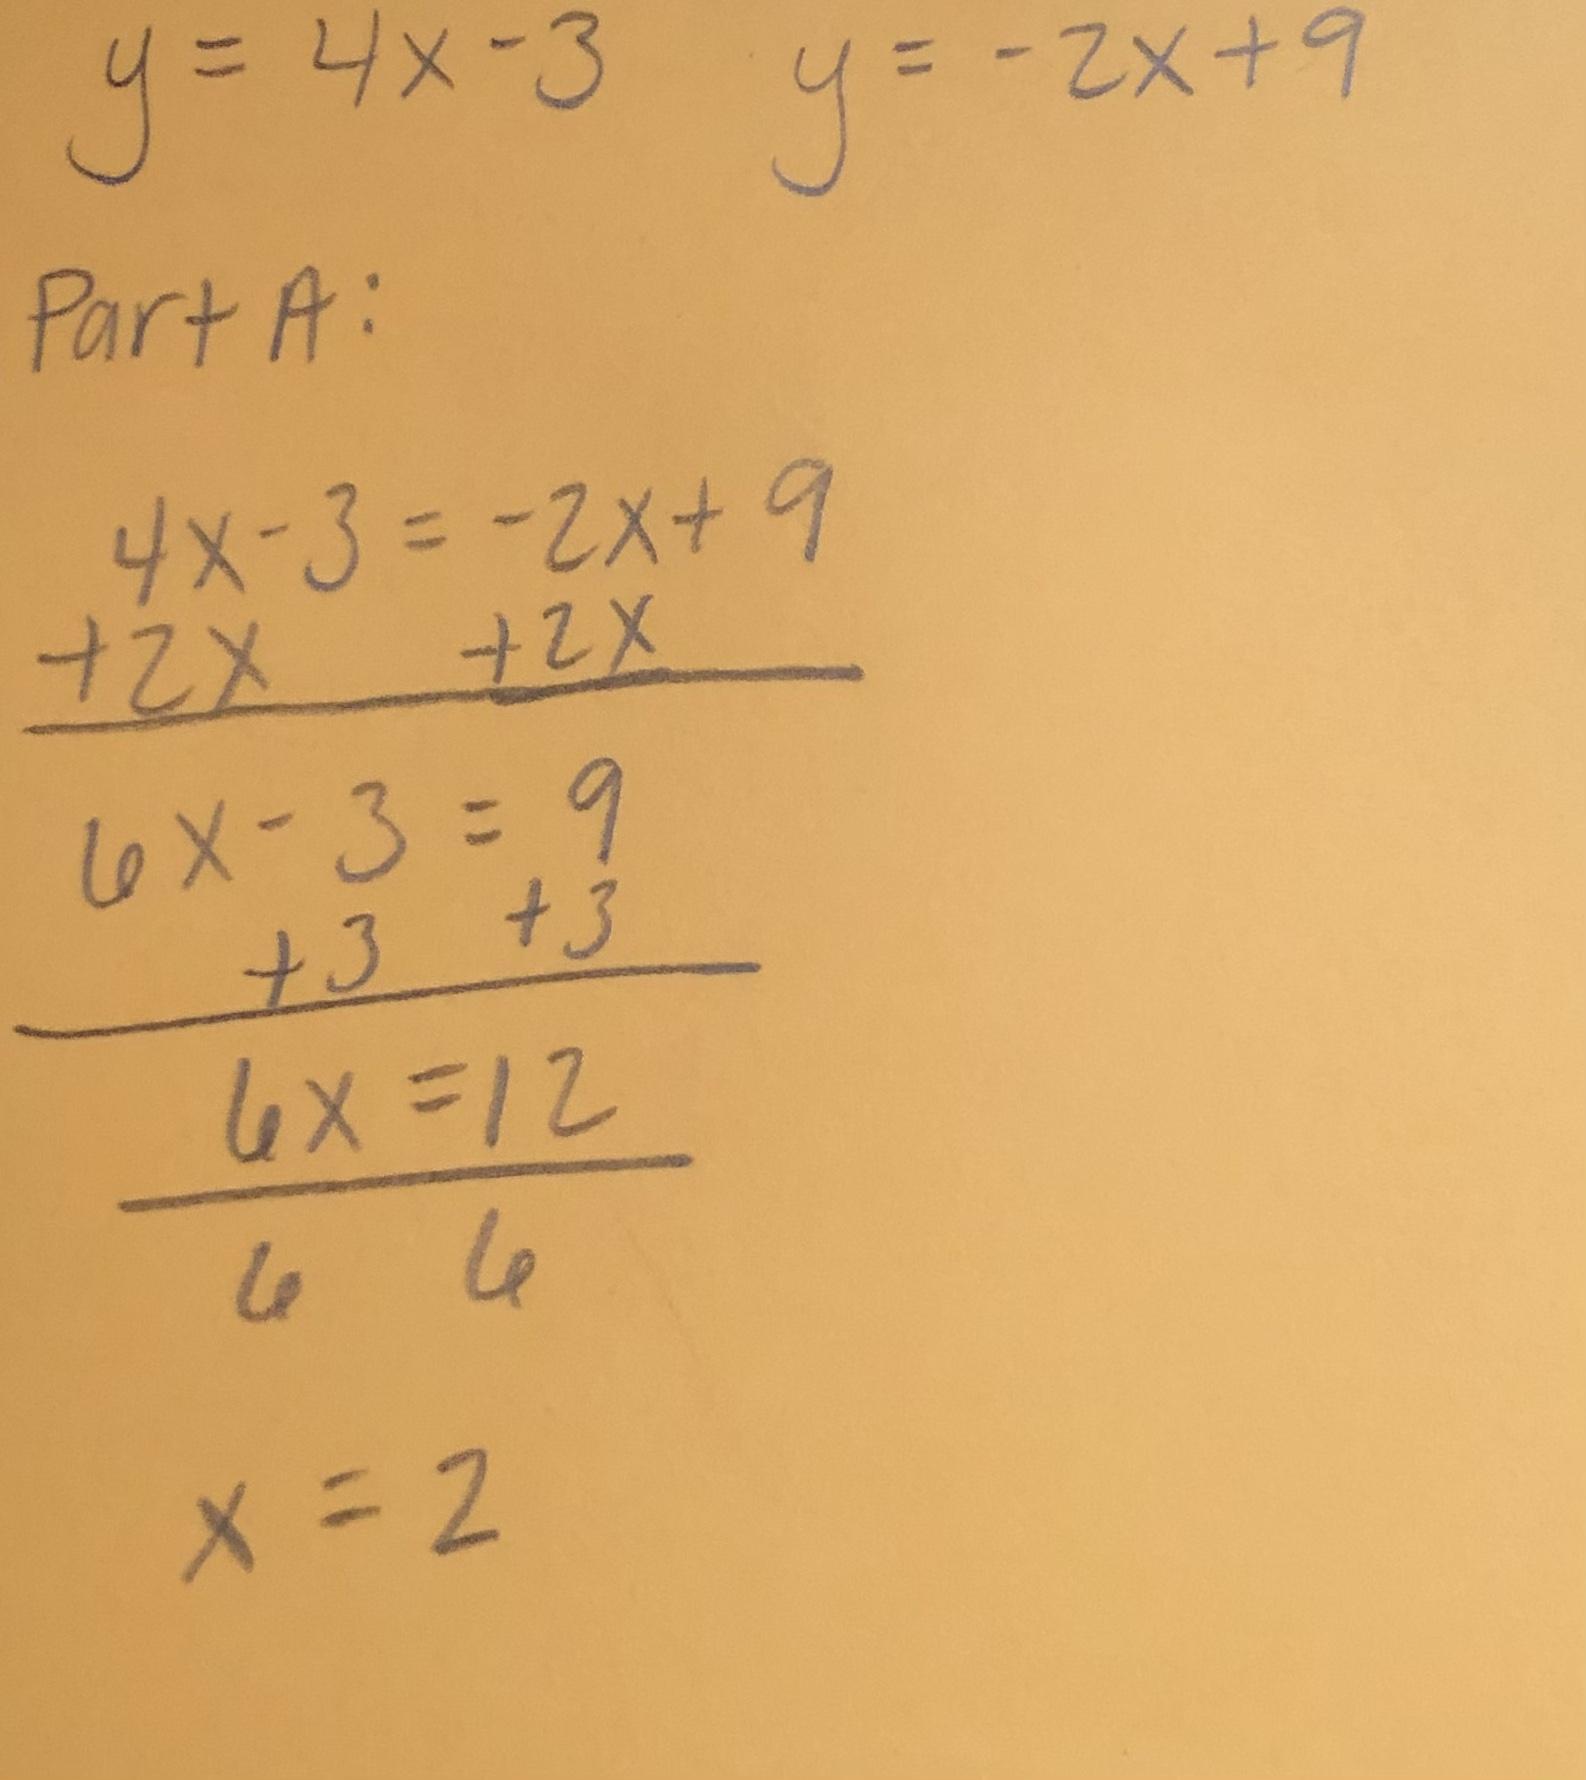 y = 4x - 3   y = -2x + 9
Part A:
4x - 3 = -2x + 9
+2x   +2x
6x - 3 = 9
+3   +3
6x = 12
6   6
x = 2